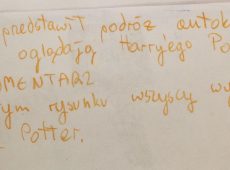 przedstawił podróż autok
oglądają Harry'ego Po
MENTARZ
ym rysunku wszyscy wy
Potter.